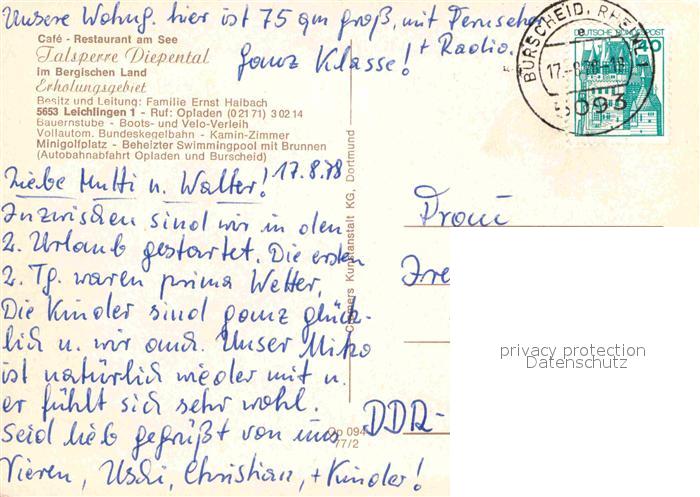 Unsere Wohng. hier ist 75 qm groß, mit Fernseher
+ Radio.
ganz Klasse!
Café - Restaurant am See
Talsperre Diepental
im Bergischen Land
Erholungsgebiet
Besitz und Leitung: Familie Ernst Halbach
5653 Leichlingen 1 - Ruf: Opladen (0 21 71) 3 02 14
Bauernstube - Boots- und Velo-Verleih
Vollautom. Bundeskegelbahn - Kamin-Zimmer
Minigolfplatz - Beheizter Swimmingpool mit Brunnen
(Autobahnabfahrt Opladen und Burscheid)
17.8.78
Liebe Mutti u. Walter!
Inzwischen sind wir in den
2. Urlaub gestartet. Die ersten
2. Tg. waren prima Wetter,
Die Kinder sind ganz glück-
lich u. wir auch. Unser Mitzo
ist natürlich wieder mit u.
er fühlt sich sehr wohl.
Seid lieb gegrüßt von uns
Vieren, Uschi, Christian, + Kinder!
Kunstanstalt KG, Dortmund
Op 094
77/2
BURSCHEID, RHEINL 1
e
17.-8.78-18
5093
DEUTSCHE BUNDESPOST
40
Frau
DDR-
privacy protection
Datenschutz